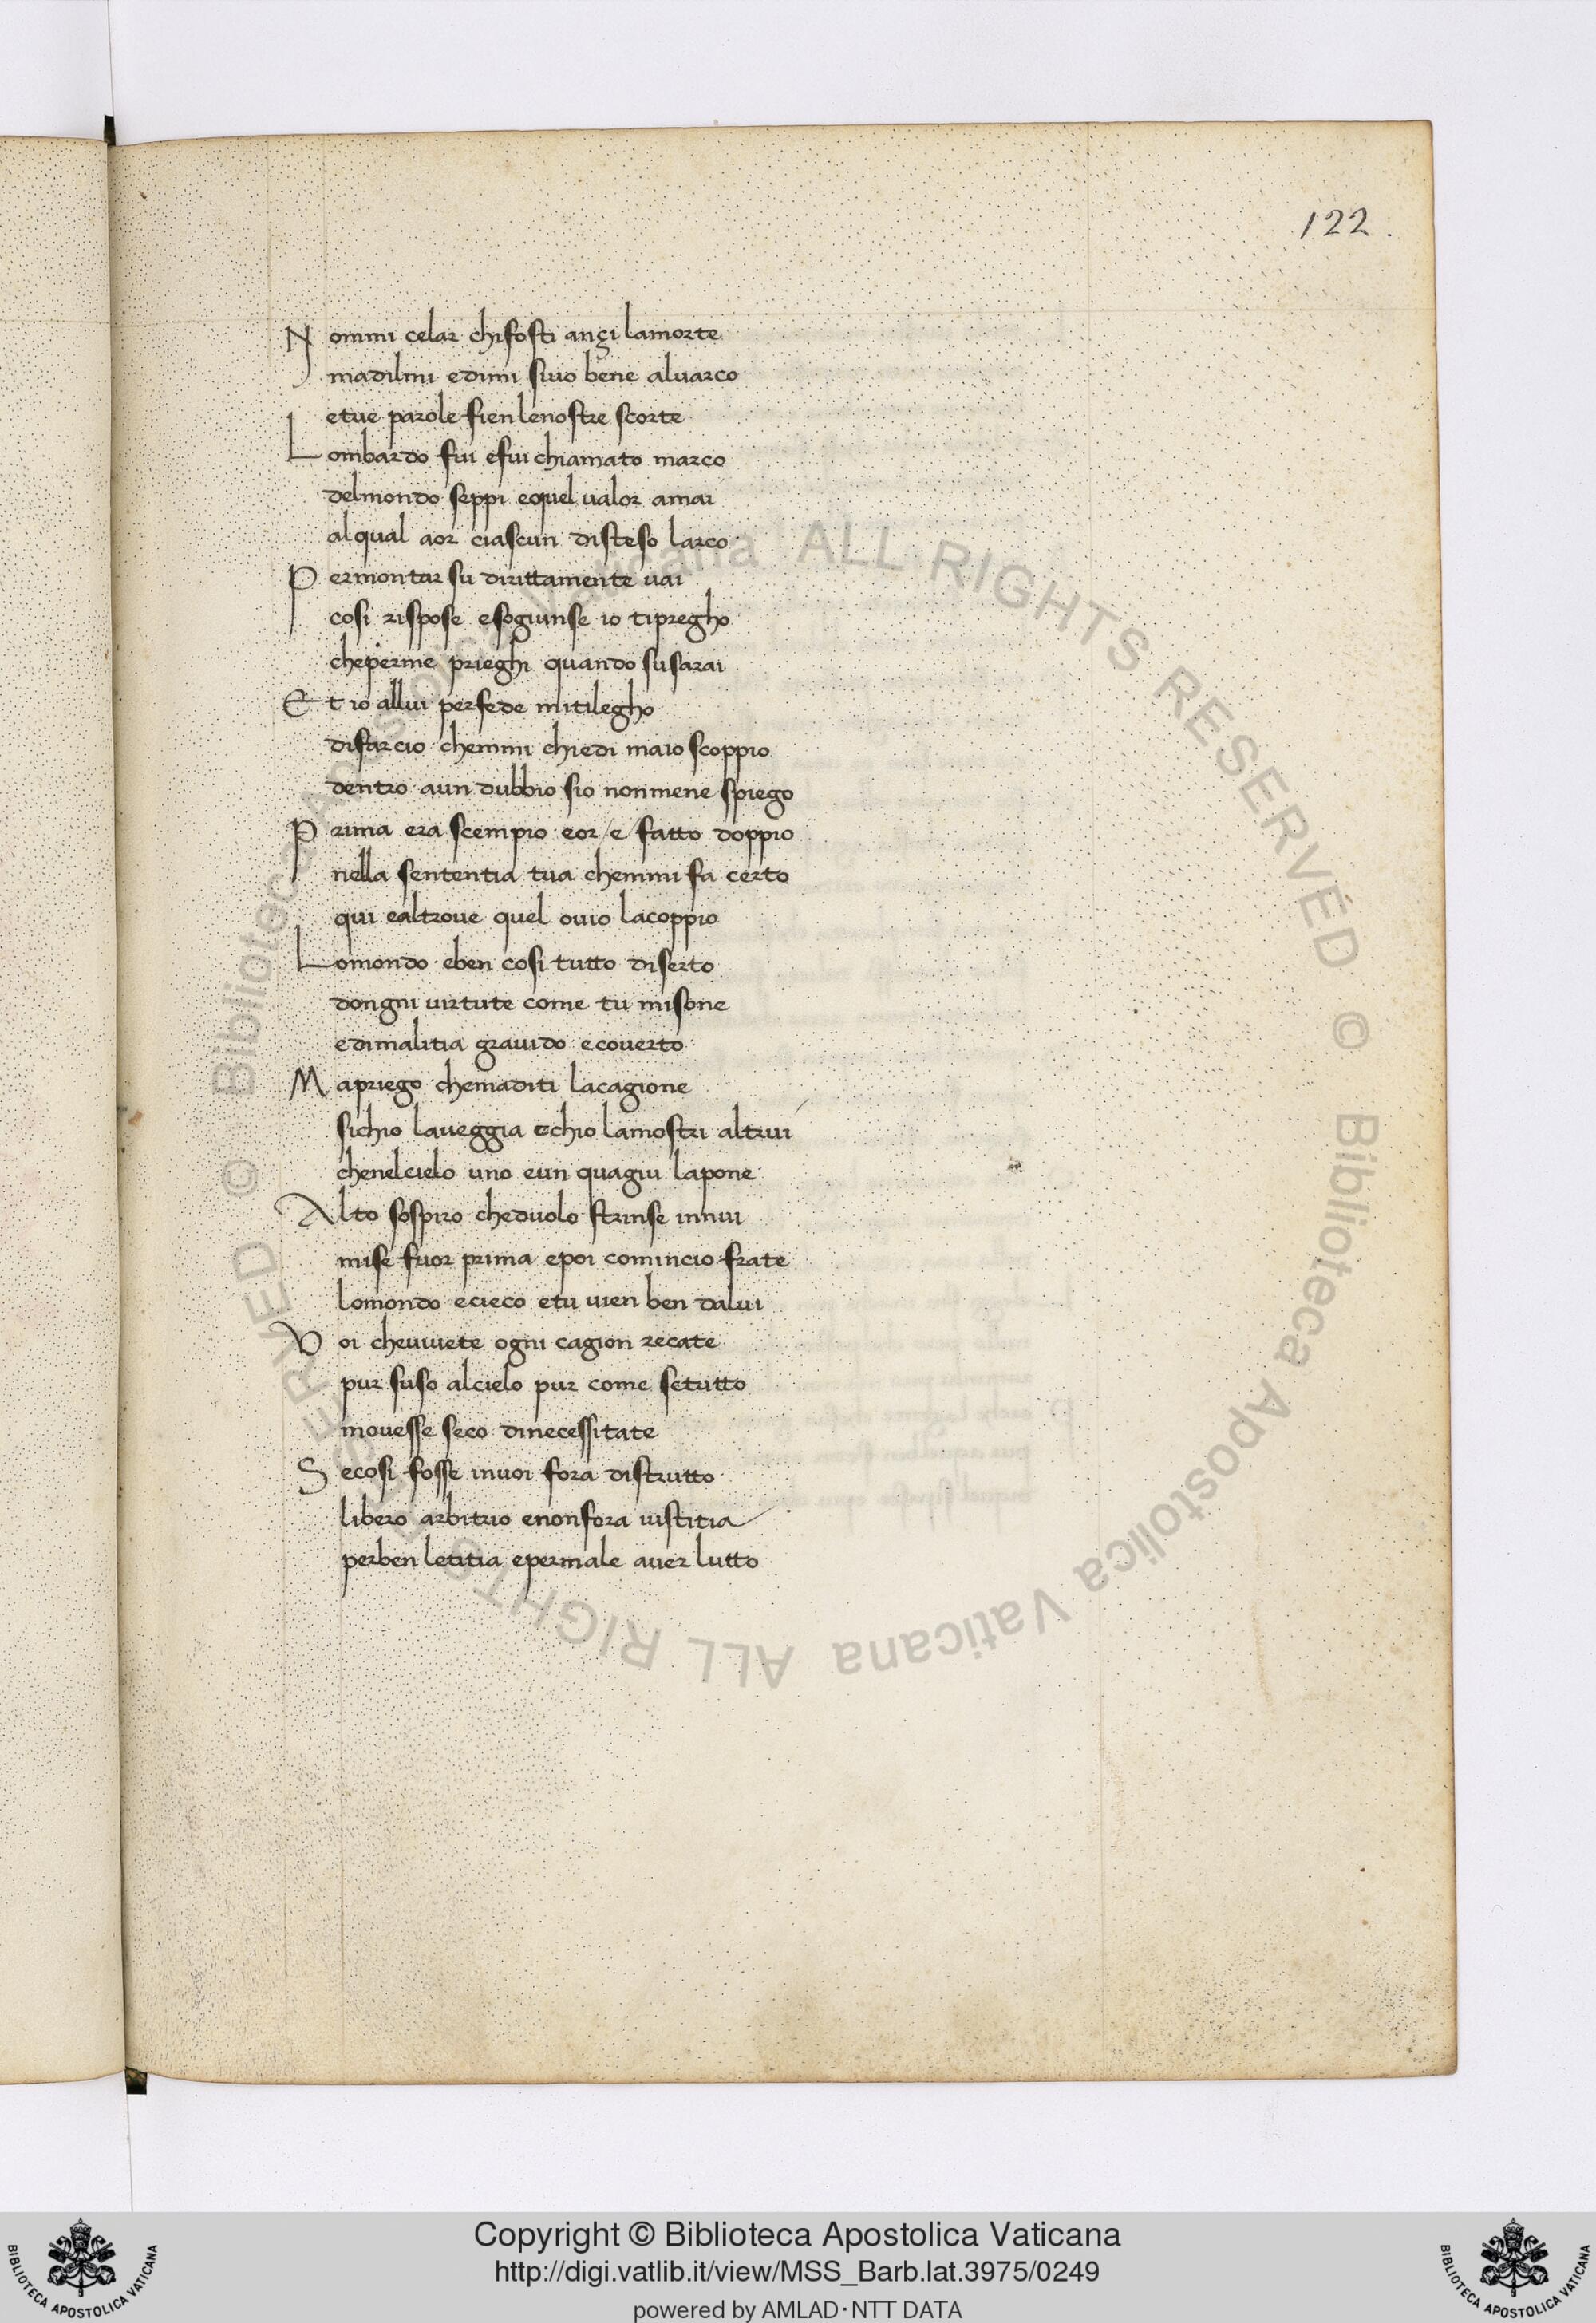 122.
Nommi celar chifosti ançi lamorte
madilmi edimi sivo bene alvarco
etue parole fien lenostre scorte
Lombardo fui efui chiamato marco
delmondo seppi equel valor amai
alqual aor ciascun disteso larco
Permontar su dirittamente vai
cosi rispose esogiunse io tipregho
cheperme prieghi quando susarai
Et io allui perfede mitilegho
difarcio chemmi chiedi maio scoppio
dentro aun dubbio sio nonmene spiego
Prima era scempio eor /e/ fatto doppio
nella sententia tua chemmi fa certo
qui ealtrove quel ovio lacoppio
Lomondo eben cosi tutto diserto
dongni virtute come tu misone
edimalitia gravido ecoverto
Mapriego chemaditi lacagione
sichio laveggia echio lamostri altrui
chenelcielo uno eun quagiu lapone
Alto sospiro cheduolo strinse innui
mise fuor prima epoi comincio frate
lomondo ecieco etu vien ben dalui
Voi chevivete ogni cagion recate
pur suso alcielo pur come setutto
movesse seco dinecessitate
Secosi fosse invoi fora distrutto
libero arbitrio enonfora iustitia
perben letitia epermale aver lutto
© Biblioteca Apostolica Vaticana ALL RIGHTS RESERVED © Biblioteca Apostolica Vaticana ALL RIGHTS RESERVED
Copyright © Biblioteca Apostolica Vaticana
http://digi.vatlib.it/view/MSS_Barb.lat.3975/0249
powered by AMLAD·NTT DATA
BIBLIOTECA APOSTOLICA VATICANA
BIBLIOTECA APOSTOLICA VATICANA